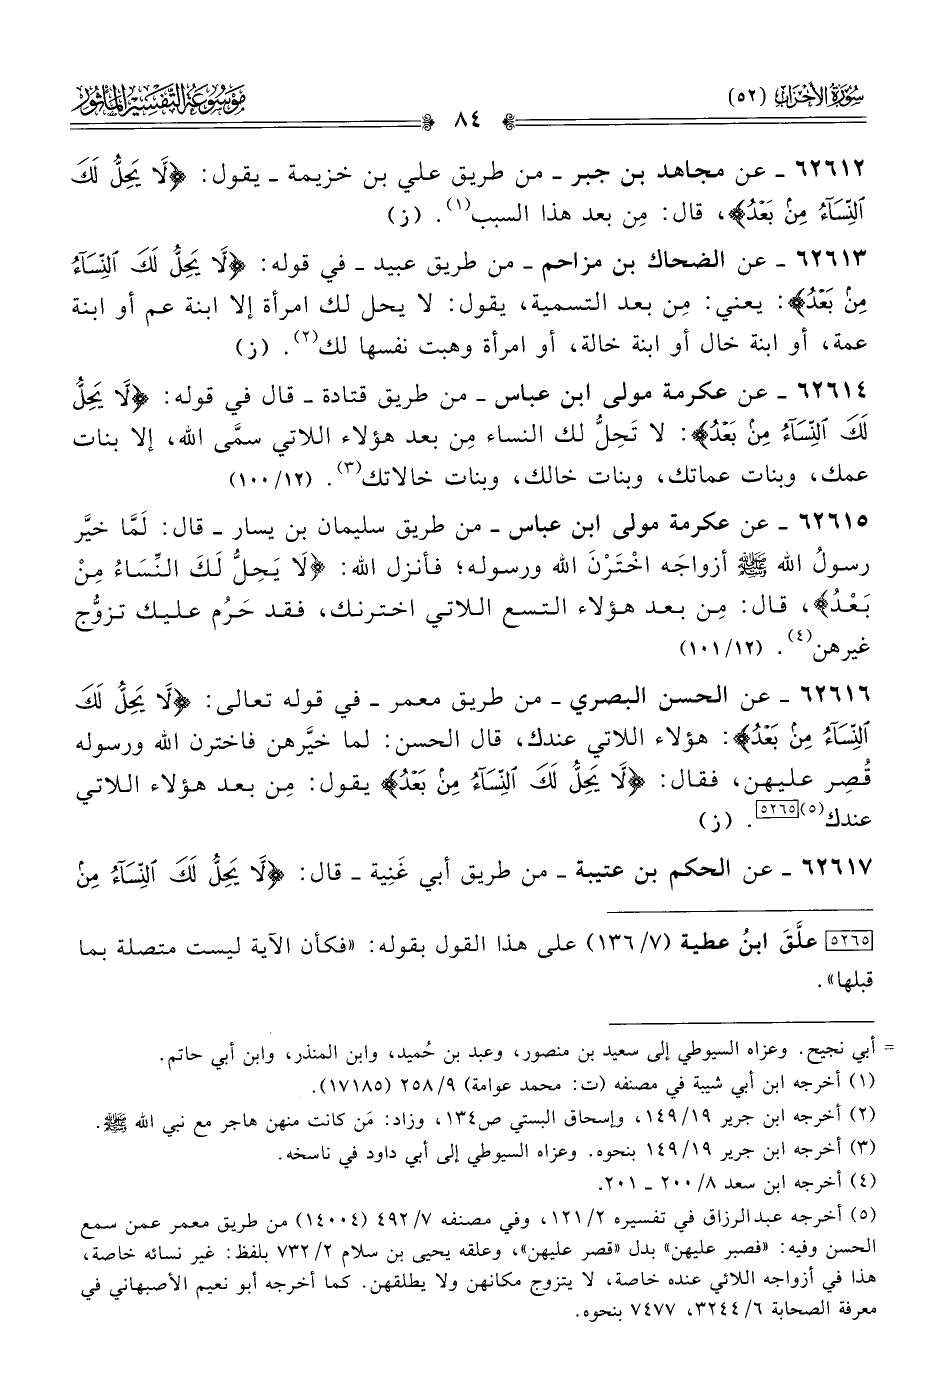 سُورَةُ الأَحْزَابِ (٥٢)
٨٤
مَوْسُوعَةُ التَّفْسِيرِ المَأْثُورِ
٦٢٦١٢ ـ عن مجاهد بن جبر ـ من طريق علي بن خزيمة ـ يقول: ﴿لَّا يَحِلُّ لَكَ
ٱلنِّسَآءُ مِنۢ بَعْدُ﴾، قال: مِن بعد هذا السبب(١). (ز)
٦٢٦١٣ ـ عن الضحاك بن مزاحم ـ من طريق عبيد ـ في قوله: ﴿لَّا يَحِلُّ لَكَ ٱلنِّسَآءُ
مِنۢ بَعْدُ﴾: يعني: مِن بعد التسمية، يقول: لا يحل لك امرأة إلا ابنة عم أو ابنة
عمة، أو ابنة خال أو ابنة خالة، أو امرأة وهبت نفسها لك(٢). (ز)
٦٢٦١٤ ـ عن عكرمة مولى ابن عباس ـ من طريق قتادة ـ قال في قوله: ﴿لَّا يَحِلُّ
لَكَ ٱلنِّسَآءُ مِنۢ بَعْدُ﴾: لا تَحِلُّ لك النساء مِن بعد هؤلاء اللاتي سمَّى الله، إلا بنات
عمك، وبنات عماتك، وبنات خالك، وبنات خالاتك(٣). (١٢/ ١٠٠)
٦٢٦١٥ ـ عن عكرمة مولى ابن عباس ـ من طريق سليمان بن يسار ـ قال: لَمَّا خيَّر
رسولُ الله ﷺ أزواجَه اخْتَرْنَ الله ورسوله؛ فأنزل الله: ﴿لَا يَحِلُّ لَكَ النِّسَاءُ مِنْ
بَعْدُ﴾، قال: مِن بعد هؤلاء التسع اللاتي اخترنك، فقد حَرُم عليك تزوُّج
غيرهن(٤). (١٢/ ١٠١)
٦٢٦١٦ ـ عن الحسن البصري ـ من طريق معمر ـ في قوله تعالى: ﴿لَّا يَحِلُّ لَكَ
ٱلنِّسَآءُ مِنۢ بَعْدُ﴾: هؤلاء اللاتي عندك، قال الحسن: لما خيَّرهن فاخترن الله ورسوله
قُصِر عليهن، فقال: ﴿لَّا يَحِلُّ لَكَ ٱلنِّسَآءُ مِنۢ بَعْدُ﴾ يقول: مِن بعد هؤلاء اللاتي
عندك(٥)[٥٢٦٥]. (ز)
٦٢٦١٧ ـ عن الحكم بن عتيبة ـ من طريق أبي غَنِية ـ قال: ﴿لَّا يَحِلُّ لَكَ ٱلنِّسَآءُ مِنۢ
[٥٢٦٥] علَّقَ ابنُ عطية (٧/ ١٣٦) على هذا القول بقوله: «فكأن الآية ليست متصلة بما
قبلها».
= أبي نجيح. وعزاه السيوطي إلى سعيد بن منصور، وعبد بن حُميد، وابن المنذر، وابن أبي حاتم.
(١) أخرجه ابن أبي شيبة في مصنفه (ت: محمد عوامة) ٩/ ٢٥٨ (١٧١٨٥).
(٢) أخرجه ابن جرير ١٩/ ١٤٩، وإسحاق البستي ص١٣٤، وزاد: مَن كانت منهن هاجر مع نبي الله ﷺ.
(٣) أخرجه ابن جرير ١٩/ ١٤٩ بنحوه. وعزاه السيوطي إلى أبي داود في ناسخه.
(٤) أخرجه ابن سعد ٨/ ٢٠٠ ـ ٢٠١.
(٥) أخرجه عبد الرزاق في تفسيره ٢/ ١٢١، وفي مصنفه ٧/ ٤٩٢ (١٤٠٠٤) من طريق معمر عمن سمع
الحسن وفيه: «فصبر عليهن» بدل «قصر عليهن»، وعلقه يحيى بن سلام ٢/ ٧٣٢ بلفظ: غير نسائه خاصة،
هذا في أزواجه اللائي عنده خاصة، لا يتزوج مكانهن ولا يطلقهن. كما أخرجه أبو نعيم الأصبهاني في
معرفة الصحابة ٦/ ٣٢٤٤، ٧٤٧٧ بنحوه.